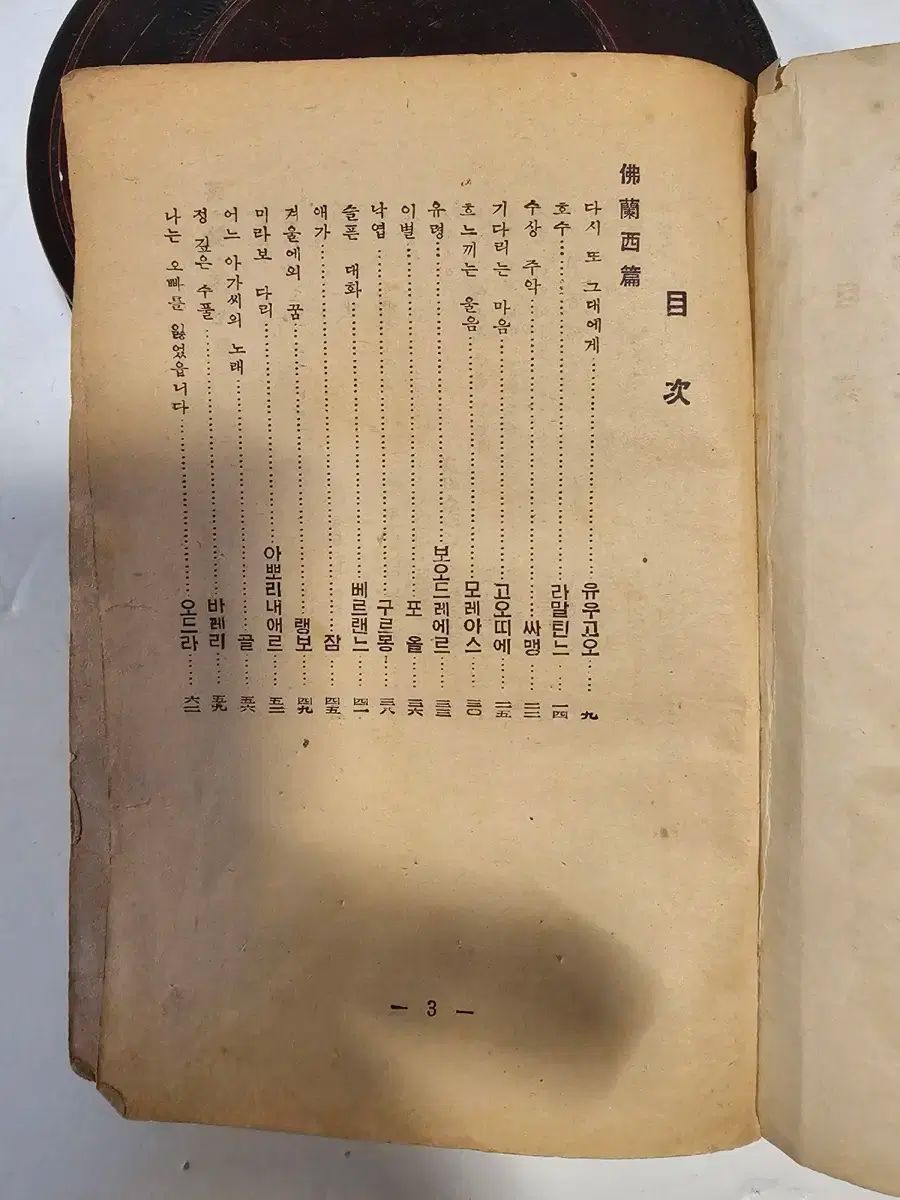 目次
佛蘭西篇
다시 또 그대에게 유우고오 九
호수 라말틴느 一四
수상 주악 싸맹 二二
기다리는 마음 고오띠에 二五
흐느끼는 울음 모레아스 三〇
유령 보오드레에르 三三
이별 포올 三六
낙엽 구르몽 三八
슬픈 대화 베르랜느 四一
애가 잠 四五
겨울에의 꿈 랭보 四九
미라보 다리 아뽀리내애르 五二
어느 아가씨의 노래 골 五六
정 깊은 수풀 바레리 五九
나는 오빠를 잃었읍니다 오드라 六二
— 3 —